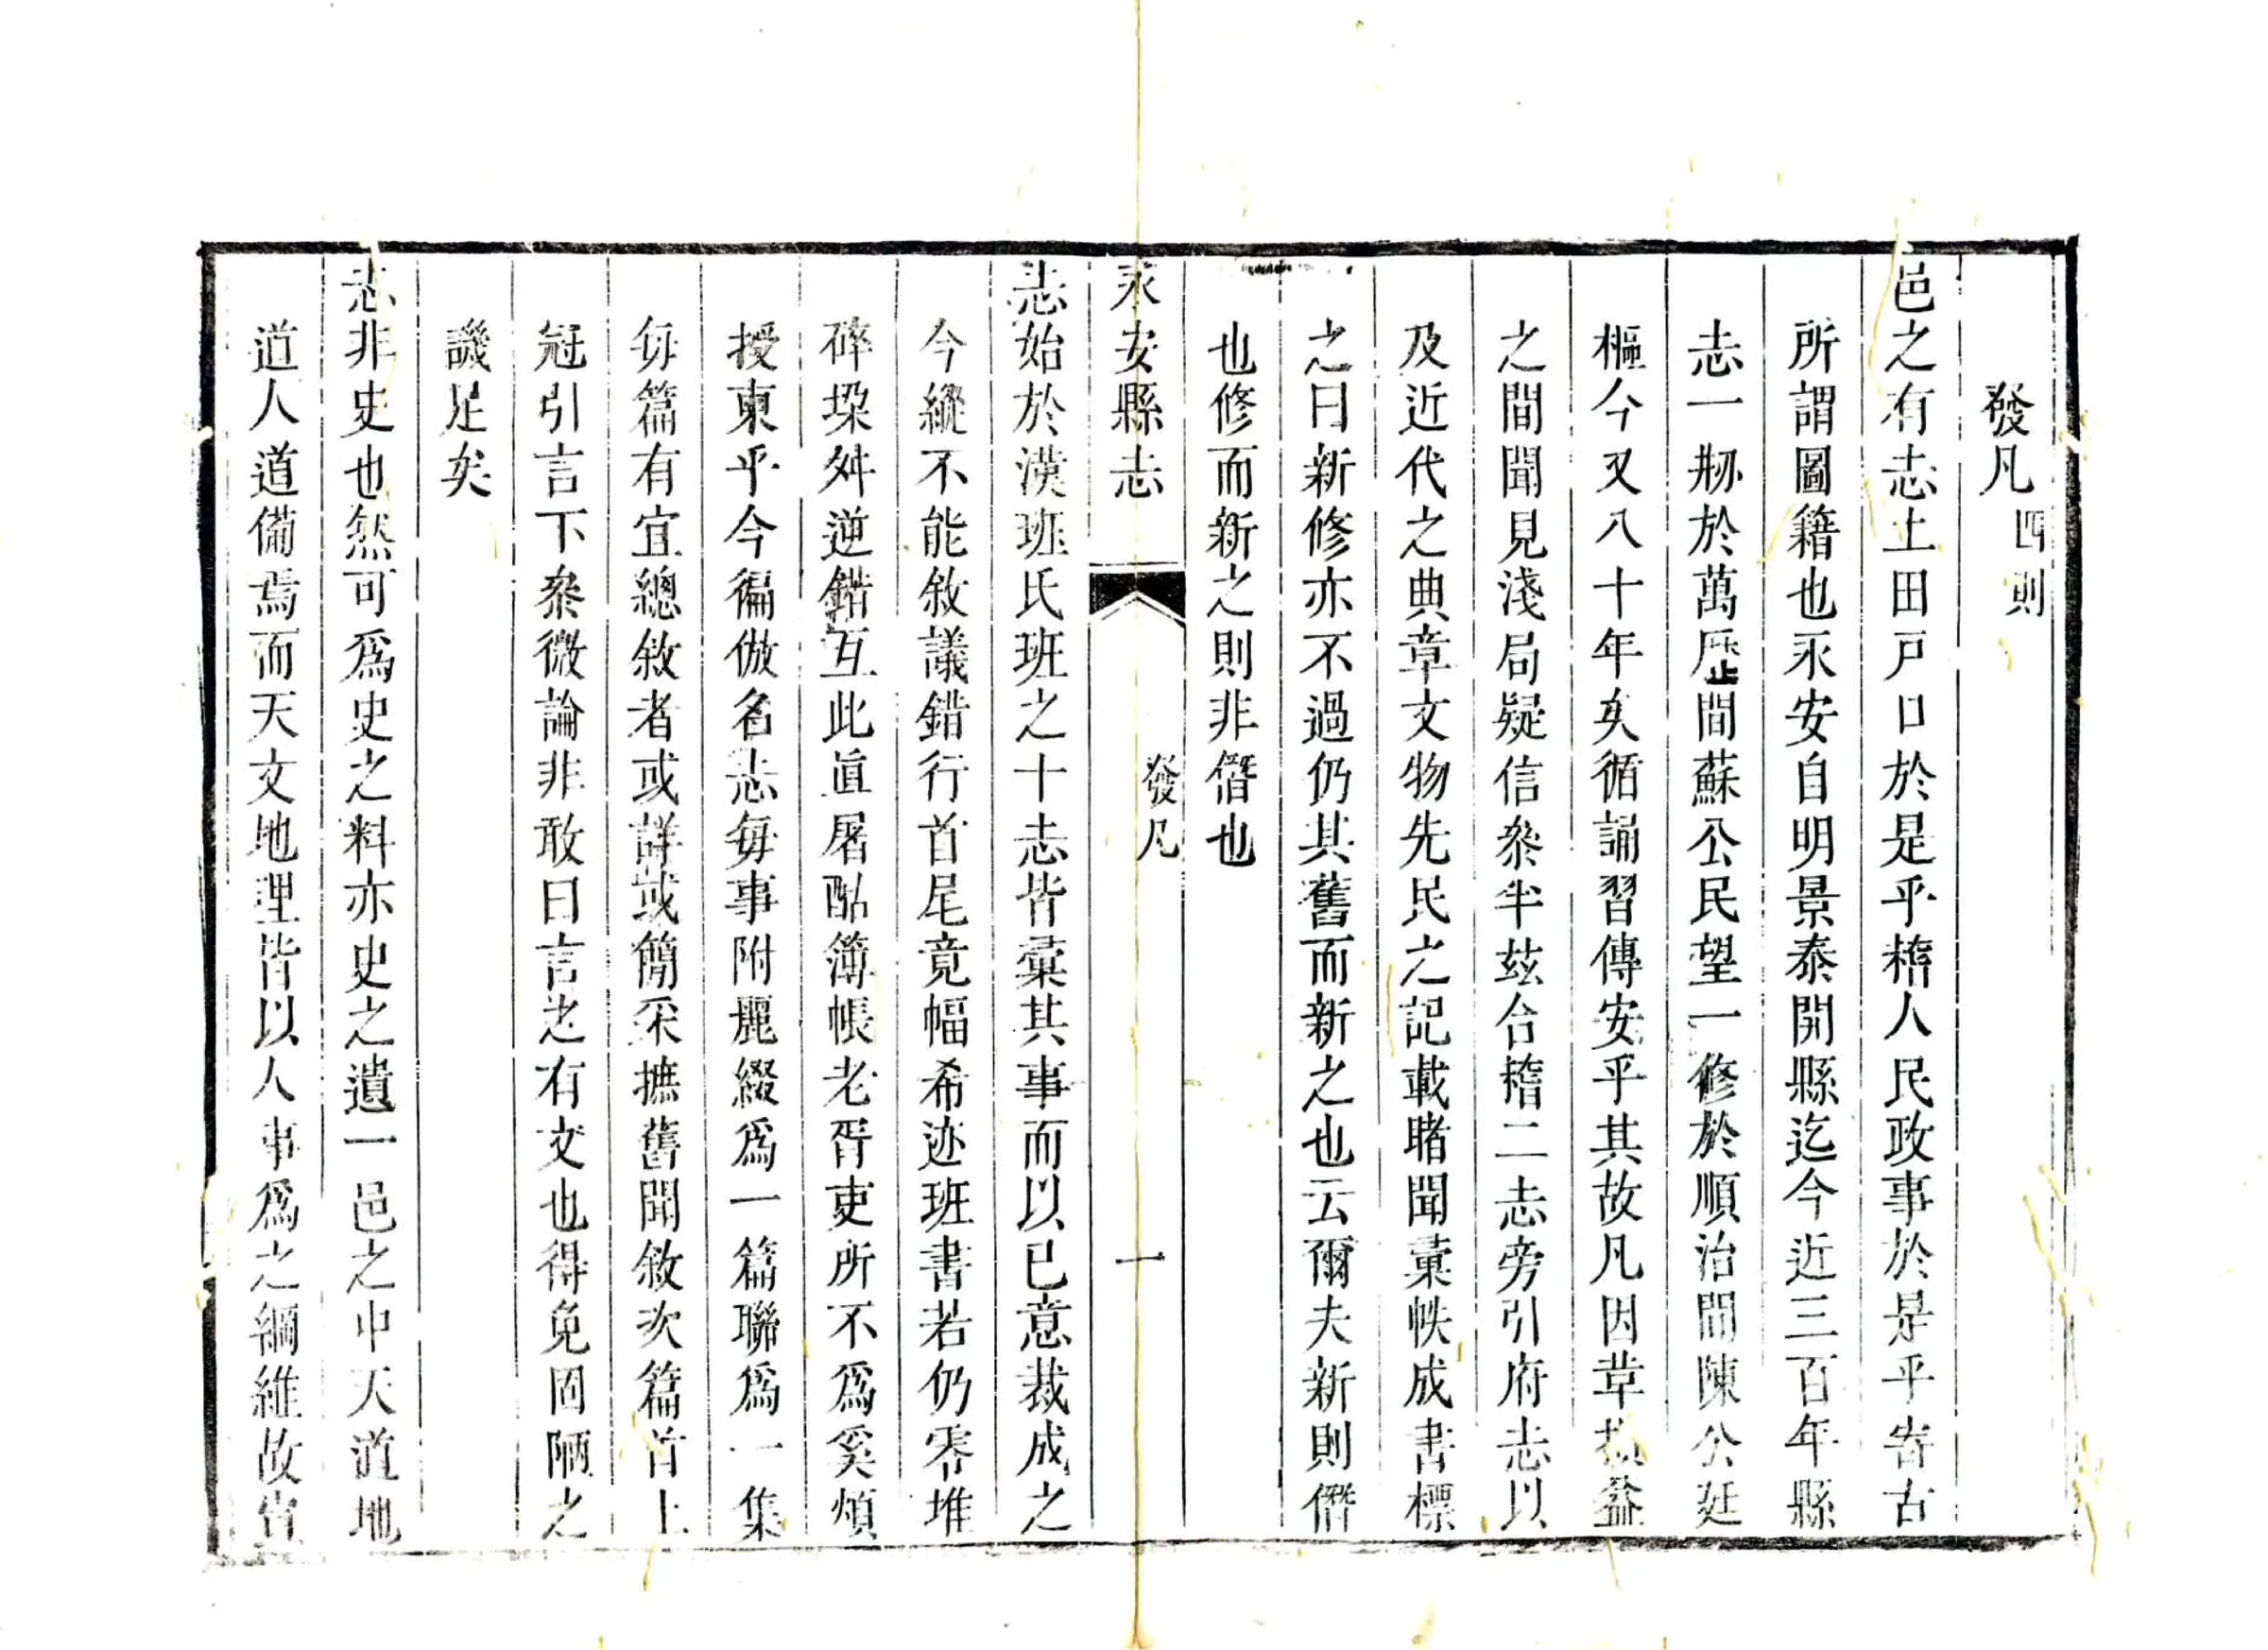 發凡四則
邑之有志土田戸口於是乎稽人民政事於是乎寄古
所謂圖籍也永安自明景泰開縣迄今近三百年縣
志一剙於萬歷間蘇公民望一修於順治間陳公廷
樞今又八十年矣循誦習傳安乎其故凡因革損益
之間聞見淺局疑信叅半玆合稽二志旁引府志以
及近代之典章文物先民之記載睹聞彙帙成書標
之曰新修亦不過仍其舊而新之也云爾夫新則僭
也修而新之則非僭也
永安縣志 發凡 一
志始於漢班氏班之十志皆彙其事而以已意裁成之
今縱不能敘議錯行首尾竟幅希迹班書若仍零堆
碎垜舛逆錯互此眞屠酤簿帳老胥吏所不爲奚煩
授柬乎今徧倣名志每事附麗綴爲一篇聯爲一集
每篇有宜總敘者或詳或簡采摭舊聞敘次篇首上
冠引言下叅微論非敢曰言之有文也得免固陋之
譏足矣
志非史也然可爲史之料亦史之遺一邑之中天道地
道人道備焉而天文地理皆以人事爲之綱維故宜